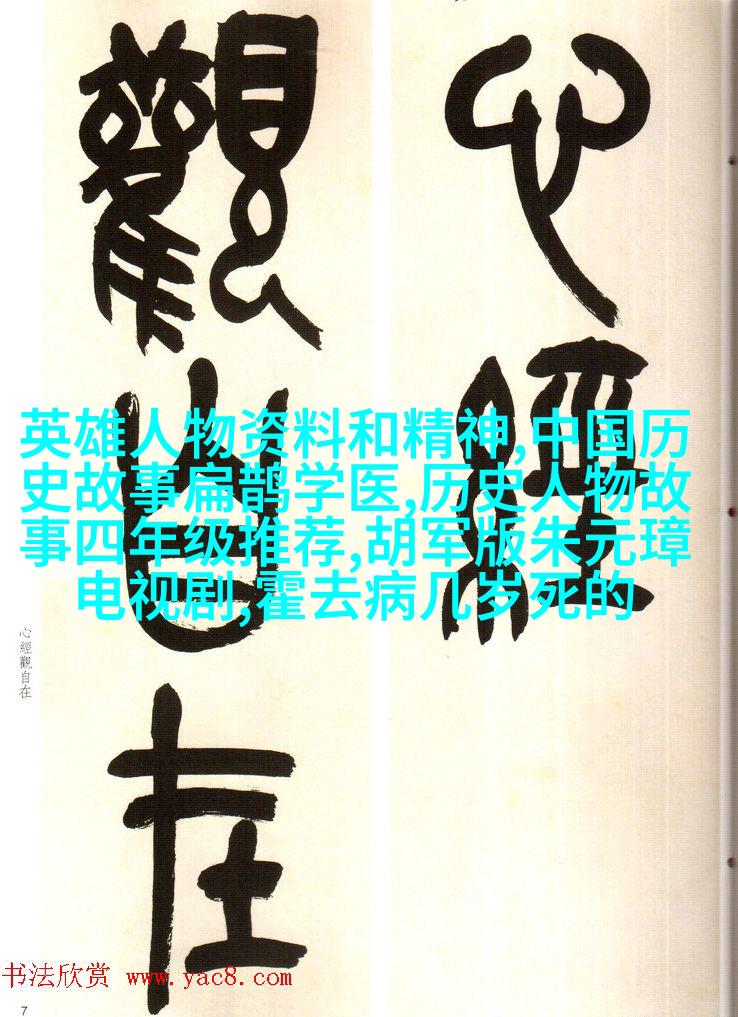 心經
觀自在
英雄人物资料和精神,中国历
史故事扁鹊学医,历史人物故
事四年级推荐,胡军版朱元璋
电视剧,霍去病几岁死的
心經觀自在
书法欣赏 www.yac8.com
7